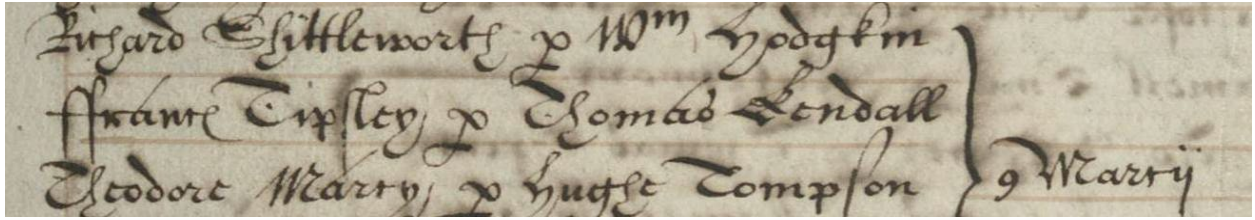 Richard Shittleworth p Wm Hodgkin
ffrance Tipsley p Thomas Kendall
Theodore Marcy p Hughe Tompson 9 Martij